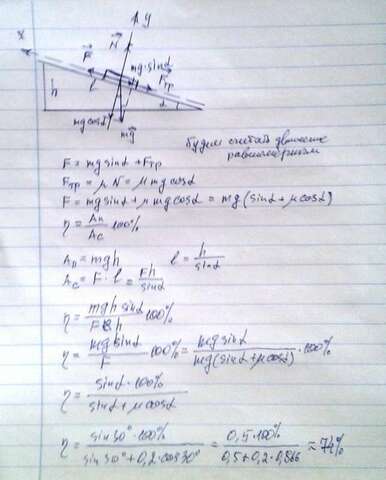 y
x
N
F
mg·sinα
Fтр
l
h
α
mg cosα
mg
Будем считать движение
равномерным
F = mg sinα + Fтр
Fтр = μN = μ mg cosα
F = mg sinα + μ mg cosα = mg (sinα + μ cosα)
η = Aп/Aс 100%
Aп = mgh l = h/sinα
Aс = F·l = Fh/sinα
η = mgh sinα/Fh ·100%
η = mg sinα/F ·100% = mg sinα/mg(sinα+μcosα) ·100%
η = sinα·100%/sinα+μcosα
η = sin30°·100%/sin30°+0,2·cos30° = 0,5·100%/0,5+0,2·0,866 ≈ 74%